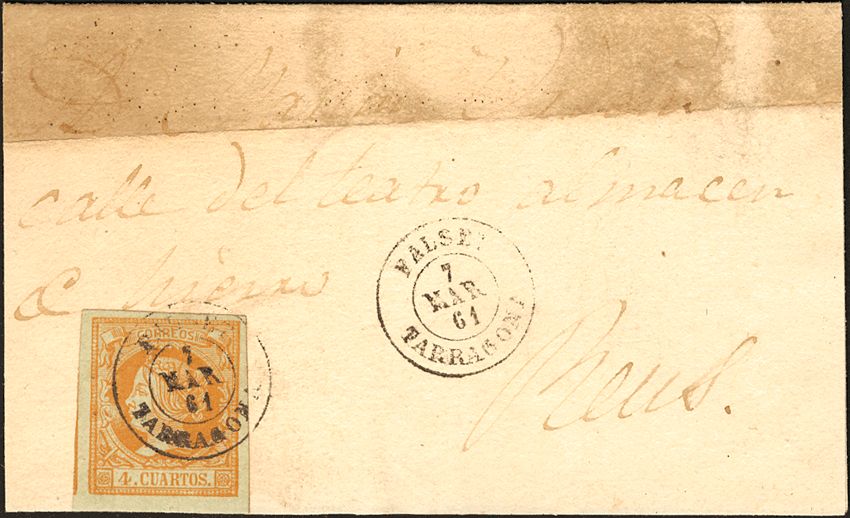 D.
calle del teatro almacen
de hierro
FALSET
7
MAR
61
TARRAGONA
Reus.
CORREOS
7
MAR
61
TARRAGONA
4. CUARTOS.